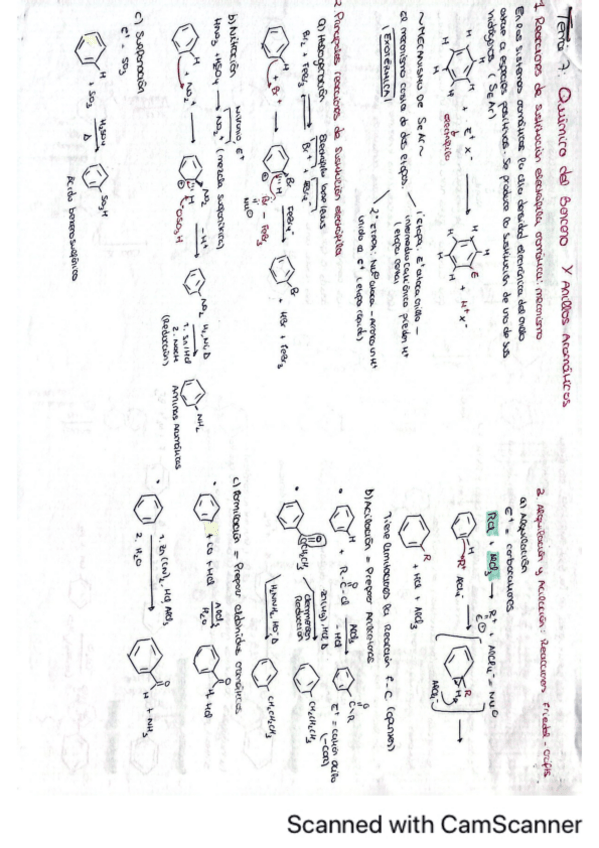 Tema 7: Química del Benceno y Anillos Aromáticos
1. Reacciones de sustitución electrófila aromática: mecanismo
En los sistemas aromáticos la alta densidad electrónica del anillo
atrae a especies positivas. Se produce la sustitución de uno de sus
hidrógenos (SEAr)
H H H H H H + E⁺ X⁻ → H H H H H E + H⁺ X⁻
electrófilo
~ MECANISMO DE SEAr ~
El mecanismo consta de dos etapas.
EXOTÉRMICA
1ª etapa: E⁺ ataca anillo –
intermedio catiónico pierde H⁺
(etapa lenta)
2ª etapa: Nu⁻ ataca – arranca H⁺
unido a E⁺ (etapa rápida)
2. Principales reacciones de sustitución electrófila
a) Halogenación Electrófilo base Lewis
Br₂ + FeBr₃ → Br⁺ + FeBr₄⁻
H + Br⁺ → Br H FeBr₄⁻ → Br + HBr + FeBr₃
Br – FeBr₃
b) Nitración
HNO₃ + H₂SO₄ → NO₂⁺ (mezcla sulfonítrica)
H + NO₂⁺ → NO₂ H OSO₃H –H⁺ → NO₂
1. Sn/HCl
2. NaOH
(Reducción)
NH₂
Aminas aromáticas
c) Sulfonación
E⁺ = SO₃
H + SO₃ H₂SO₄ Δ → SO₃H
Ácido bencenosulfónico
3. Alquilación y Acilación: Reacciones Friedel-Crafts
a) Alquilación
E⁺ = carbocationes
RCl + AlCl₃ → R⁺ + AlCl₄⁻ = Nu⊖
E⊕
H R⁺ AlCl₄⁻ → R H AlCl₄⁻ →
R + HCl + AlCl₃
Tiene limitaciones la reacción F-C
b) Acilación = Preparar
H + R-C-Cl O AlCl₃ –HCl → O C-R
E⁺ = catión acilo
O CCH₂CH₃ Zn(Hg), HCl Δ → CH₂CH₂CH₃
Clemmensen
Reducción
H₂NNH₂, HO⁻ Δ → CH₂CH₂CH₃
c) Formilación = Preparar aldehídos aromáticos
+ CO + HCl AlCl₃ H₂O → O H + HCl
1. Zn(CN)₂, HCl, AlCl₃
2. H₂O
O H + NH₃
Scanned with CamScanner